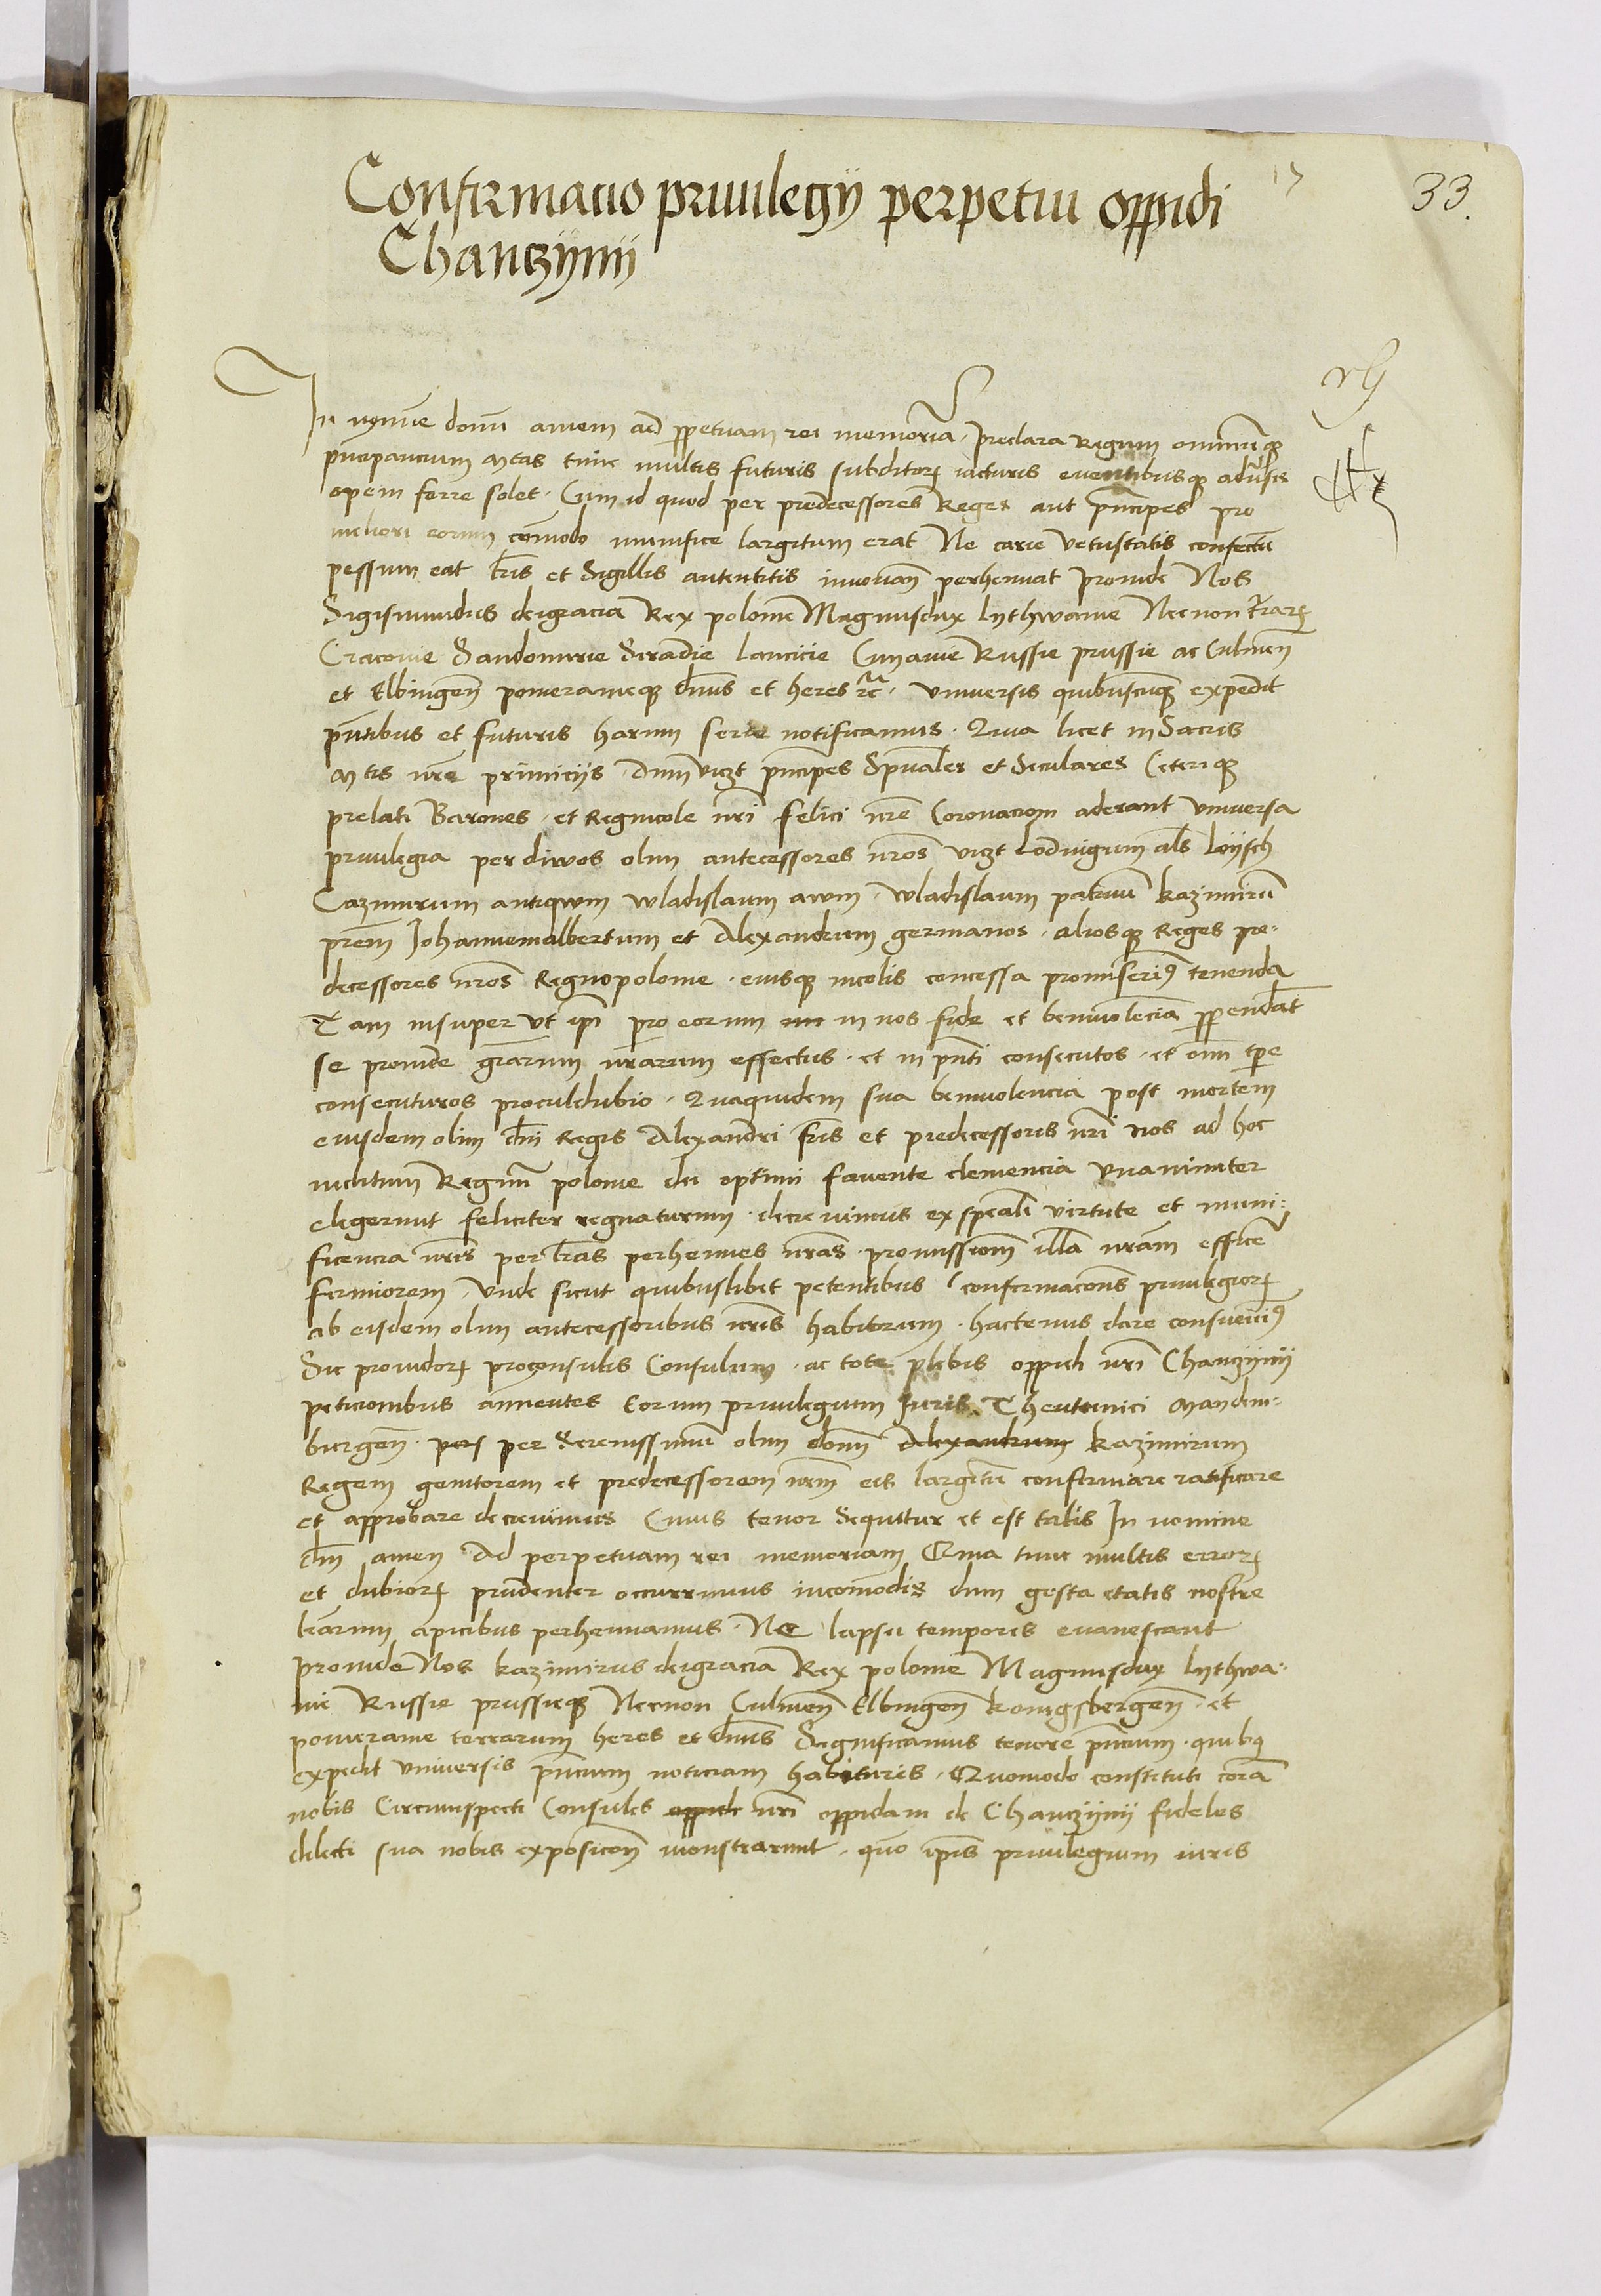 33.
Confirmacio privilegij perpetui oppidi
Chanczynij
In nomine domini amen ad perpetuam rei memoriam. Preclara Regum omniumque
principancium Mtas tunc multis futuris subditorum iacturis eventibusque adversis
opem ferre solet. Cum id quod per predecessores Reges aut principes pro
meliori eorum comodo munifice largitum erat Ne carie vetustatis confectum
pessum eat lris et Sigillis autenticis innovan perhennat Proinde Nos
Sigismundus deigracia Rex polonie Magnusdux lythwanie Necnon trarum
Cracovie Sandomirie Siradie lancicie Cuiavie Russie prussie ac Culmen
et Elbingen pomeranieque dnus et heres etc. Universis quibuscunque expedit
pntibus et futuris harum serie notificamus. Quia licet in Sacris
Mtis nre primicijs dum vizt principes Spuales et Seculares Ceterique
prelati Barones et Regnicole nri felici nre Coronacioni aderant universa
privilegia per divos olim antecessores nros vizt Lodvigum als Loysch
Cazimirum antiquum wladislaum avum. wladislaum patruum kazimirum
prem Johannemalbertum et Alexandrum germanos. aliosque Reges pre-
decessores nros Regnopolonie. eiusque incolis concessa promiserimus tenenda
Tam insuper ut ipi pro eorum in nos fide et benivolencia perpendat
se proinde grarum nrarum effectus. et in pnti consecutos. et omni tpre
consecuturos proculdubio. Quaquidem sua benivolencia post mortem
eiusdem olim dni Regis Alexandri fris et predecessoris nri nos ad hoc
inclitum Regnum polonie dei optimi favente clemencia unanimiter
elegerunt feliciter regnaturum. decrevimus ex speciali virtute et muni-
ficencia nris per lras perhennes nras. promissionem illam nram efficere
firmiorem. Unde sicut quibuslibet petentibus confirmacones privilegiorum
ab eisdem olim antecessoribus nris habitorum. hactenus dare consuevimus
Sic providorum proconsulis Consulum. ac tote plebis oppidi nri Chanczynij
peticionibus annuentes Eorum privilegium Juris Theutunici Mandem-
burgen. per Serenissimum olim dominum Alexandrum kazimirum
Regem genitorem et predecessorem nrm eis largitum confirmare ratificare
et approbare decrevimus Cuius tenor Sequitur et est talis In nomine
dni amen Ad perpetuam rei memoriam Quia tunc multis errorum
et dubiorum prudenter occurrimus incomodis dum gesta etatis nostre
lrarum apicibus perhennamus. Ne lapsu temporis evanescant
proinde Nos kazimirus deigracia Rex polonie Magnusdux lythwa-
nie Russie prussieque Necnon Culmen Elbingen konigsbergen. et
pomeranie terrarum heres et dnus Significamus tenore pncium. quibus
expedit universis pncium noticiam habituris. Quomodo constituti coram
nobis Circumspecti Consules oppidi nri oppidani de Chanczynij fideles
dilecti sua nobis exposicon monstrarunt. quo ipis privilegium iuris